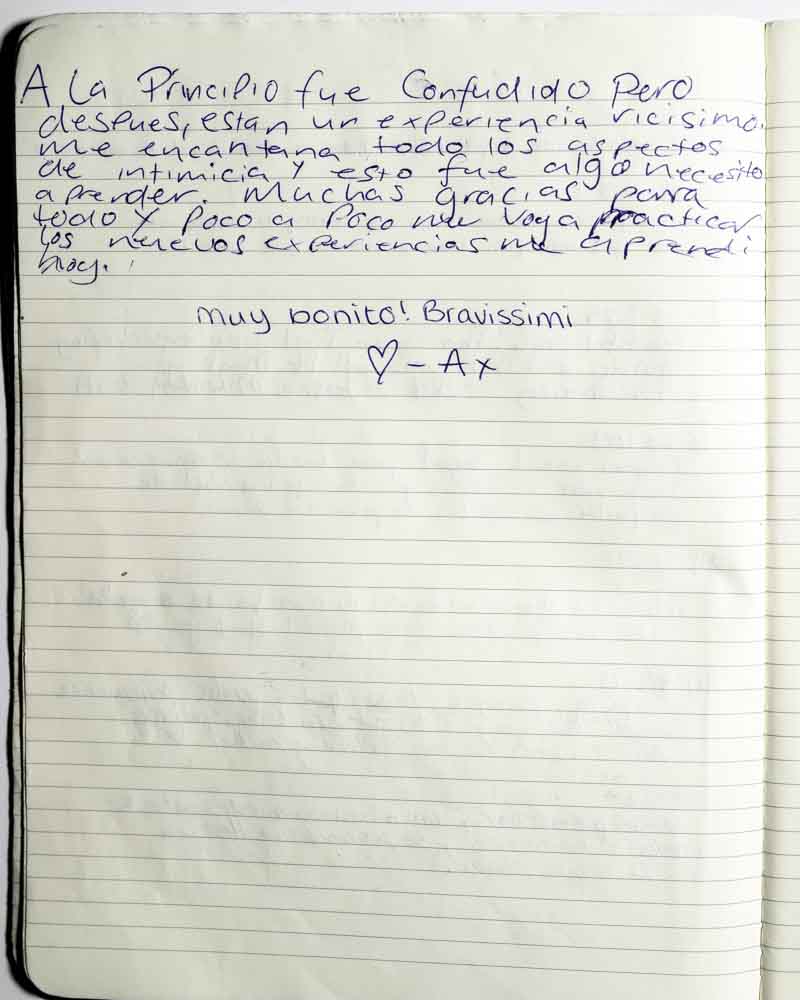 A la Principio fue Confudido Pero
despues, estan un experiencia ricisimo.
me encantana todo los aspectos
de intimicia y esto fue algo necesito
aprender. Muchas gracias para
todo y Poco a Poco me voy a practicar
los nuevos experiencias me aprendi
hoy.
muy bonito! Bravissimi
♡ - Ax